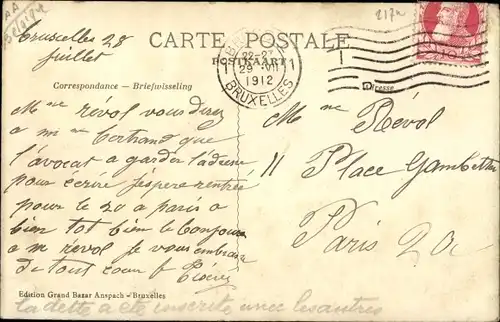 Bruxelles 28
juillet
CARTE POSTALE
POSTKAART
29 VII
1912
BRUXELLES
217a
Correspondance — Briefwisseling
Adresse
Mme révol vous direz
a m Bertrand que
l'avocat a garder l'adresse
pour écrire j'espere rentré
pour le 20 a paris a
bien tot bien le bonjour
a m révol je vous embrasse
de tout coeur
Mme Révol
11 Place Gambetta
Paris 20e
Edition Grand Bazar Anspach - Bruxelles
la dette a été inscrite avec les autres